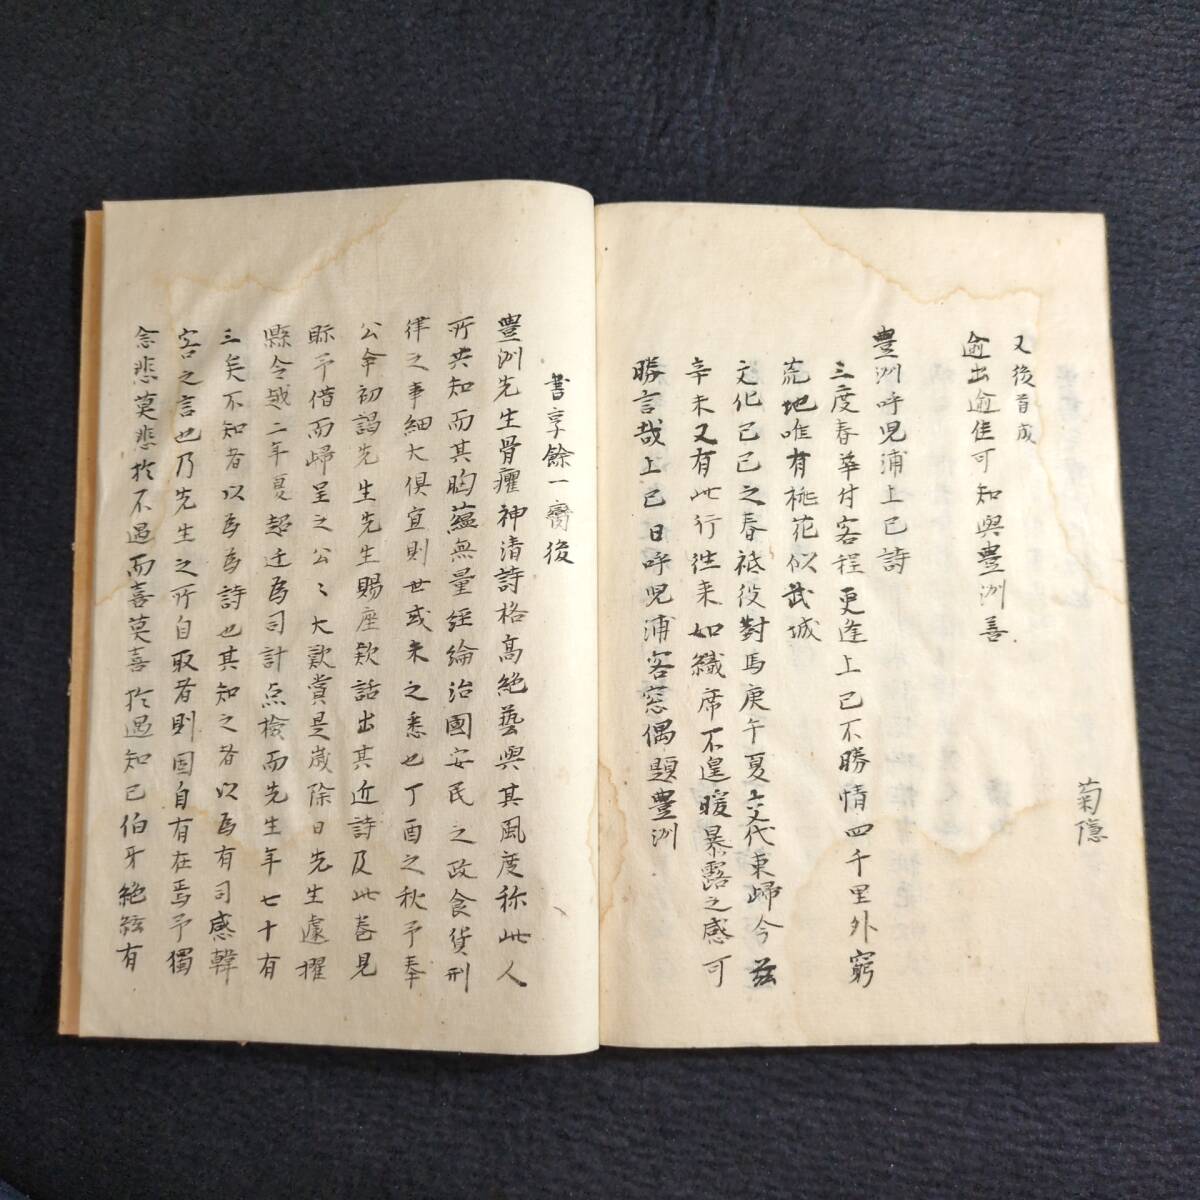 又後首成
菊隱
逾出逾佳可知與豊洲善
豊洲呼児浦上巳詩
三度春華付客程更逢上巳不勝情四千里外窮
荒地唯有桃花似武城
文化己巳之春祗役對馬庚午夏交代東歸今茲
辛未又有此行往来如織席不遑暖暴露之感可
勝言哉上巳日呼児浦客窓偶題豊洲
書享餘一臠後
豊洲先生骨癯神清詩格髙絶藝與其風度称此人
所共知而其胸蘊無量経綸治國安民之政食貨刑
律之事細大倶宜則世或未之悉也丁酉之秋予奉
公命初謁先生先生賜座欵話出其近詩及此巻見
眎予借而歸呈之公〻大歎賞是歳除日先生遽擢
縣令越二年夏超迁為司計点檢而先生年七十有
三矣不知者以為為詩也其知之者以為有司感韓
客之言也乃先生之所自取者則固自有在焉予獨
念悲莫悲於不遇而喜莫喜於遇知己伯牙絶絃有